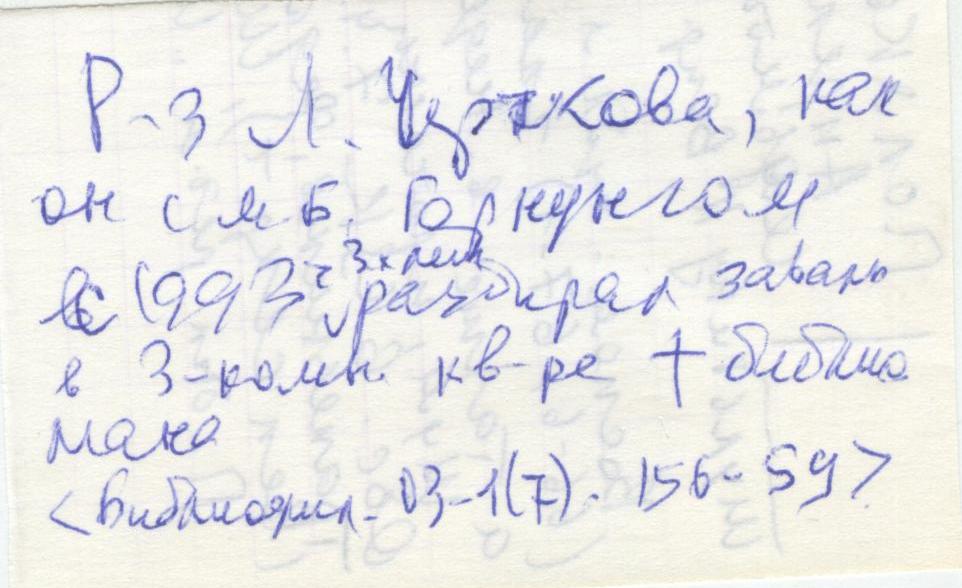 Р-з Л. Черткова, как
он с М.Б. Горнунгом
с 1993 г. 3х лет разбирал завалы
в 3-комн. кв-ре † библио
мана
<Библиофил. 03-1(7). 156-59>